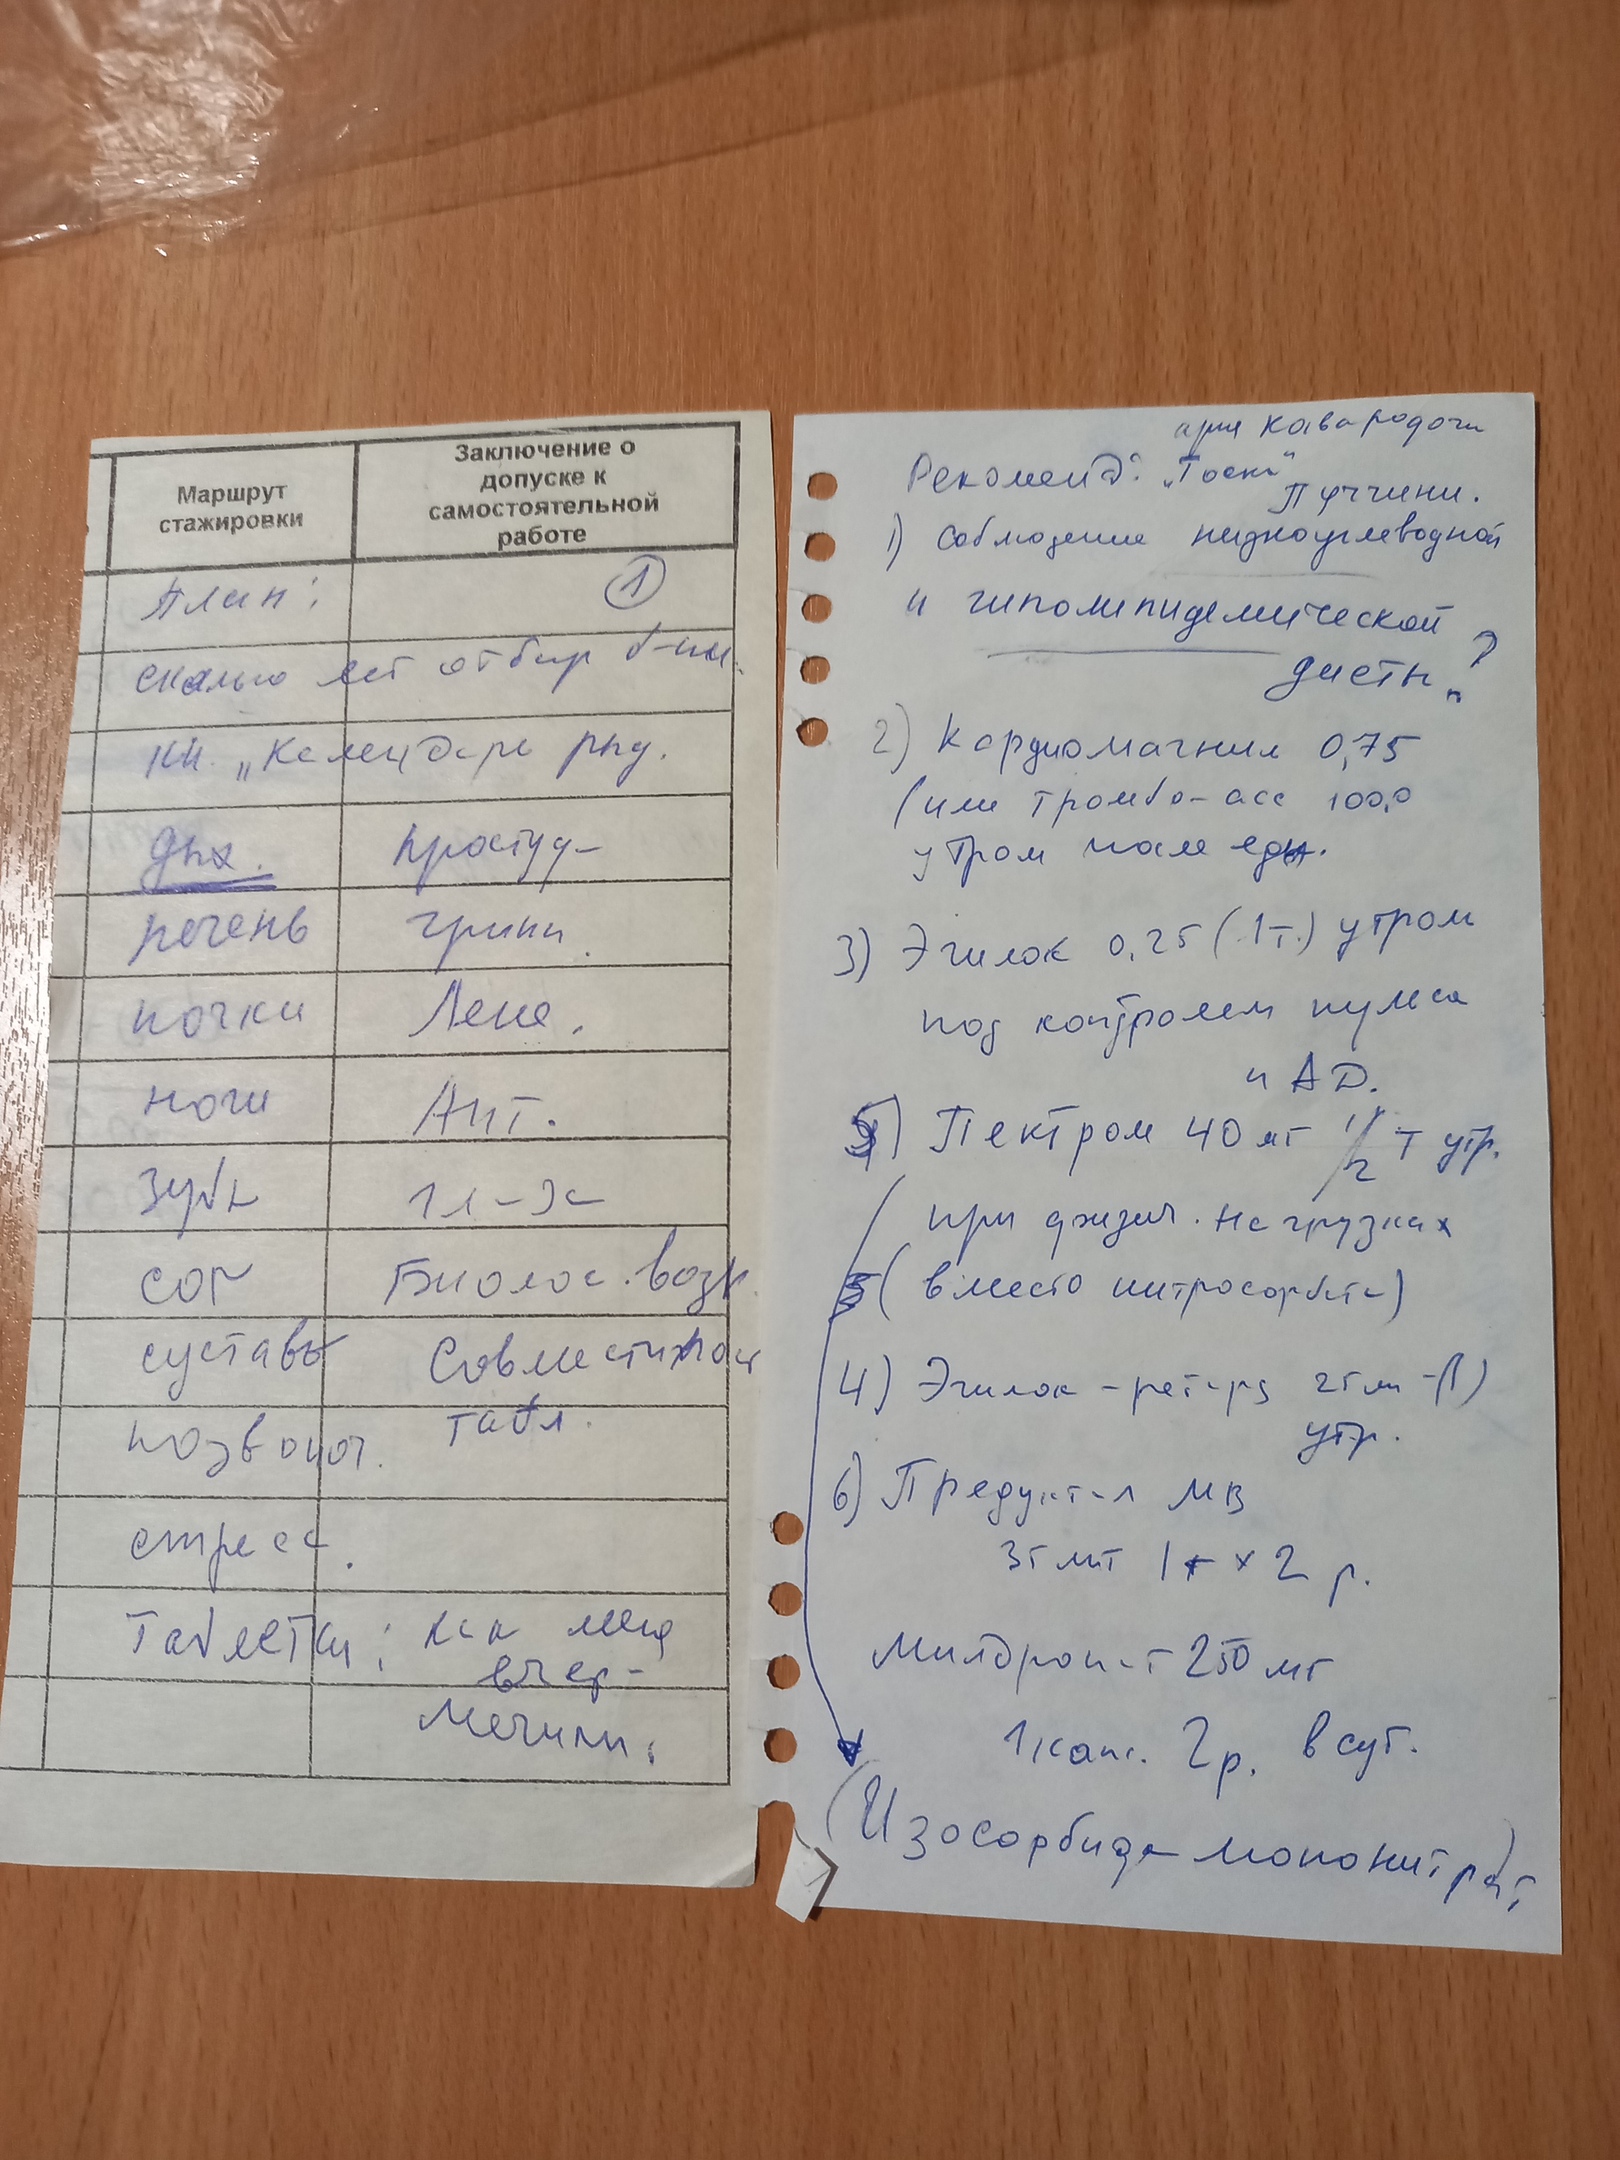 Маршрут стажировки
Заключение о допуске к самостоятельной работе
План: ①
сколько лет отбир
кн. „Календарь
дых. простуд-
печень грипп.
почки Лена.
ноги Ант.
зубы
сог Биолог. возр.
суставы Совместимост
позвоноч. табл.
стресс.
Таблетки: как меня
вчер-
мечили.
ария Каварадоси
Рекоменд: „Тоска"
Пуччини.
1) Соблюдение низкоуглеводной
и гиполипидемической
диеты?
2) Кардиомагнил 0,75
(или тромбо-асс 100,0
утром после еды.
3) Эгилок 0,25 (1т.) утром
под контролем пульса
и АД.
5) Пектрол 40 мг 1/2 т утр.
при физич. нагрузках
5 (вместо нитросорбита)
4) Эгилок-ретард 25 мг
утр.
6) Предуктал МВ
35 мг 1т x 2 р.
Милдронат 250 мг
1 капс. 2 р. в сут.
(Изосорбида мононитрат)